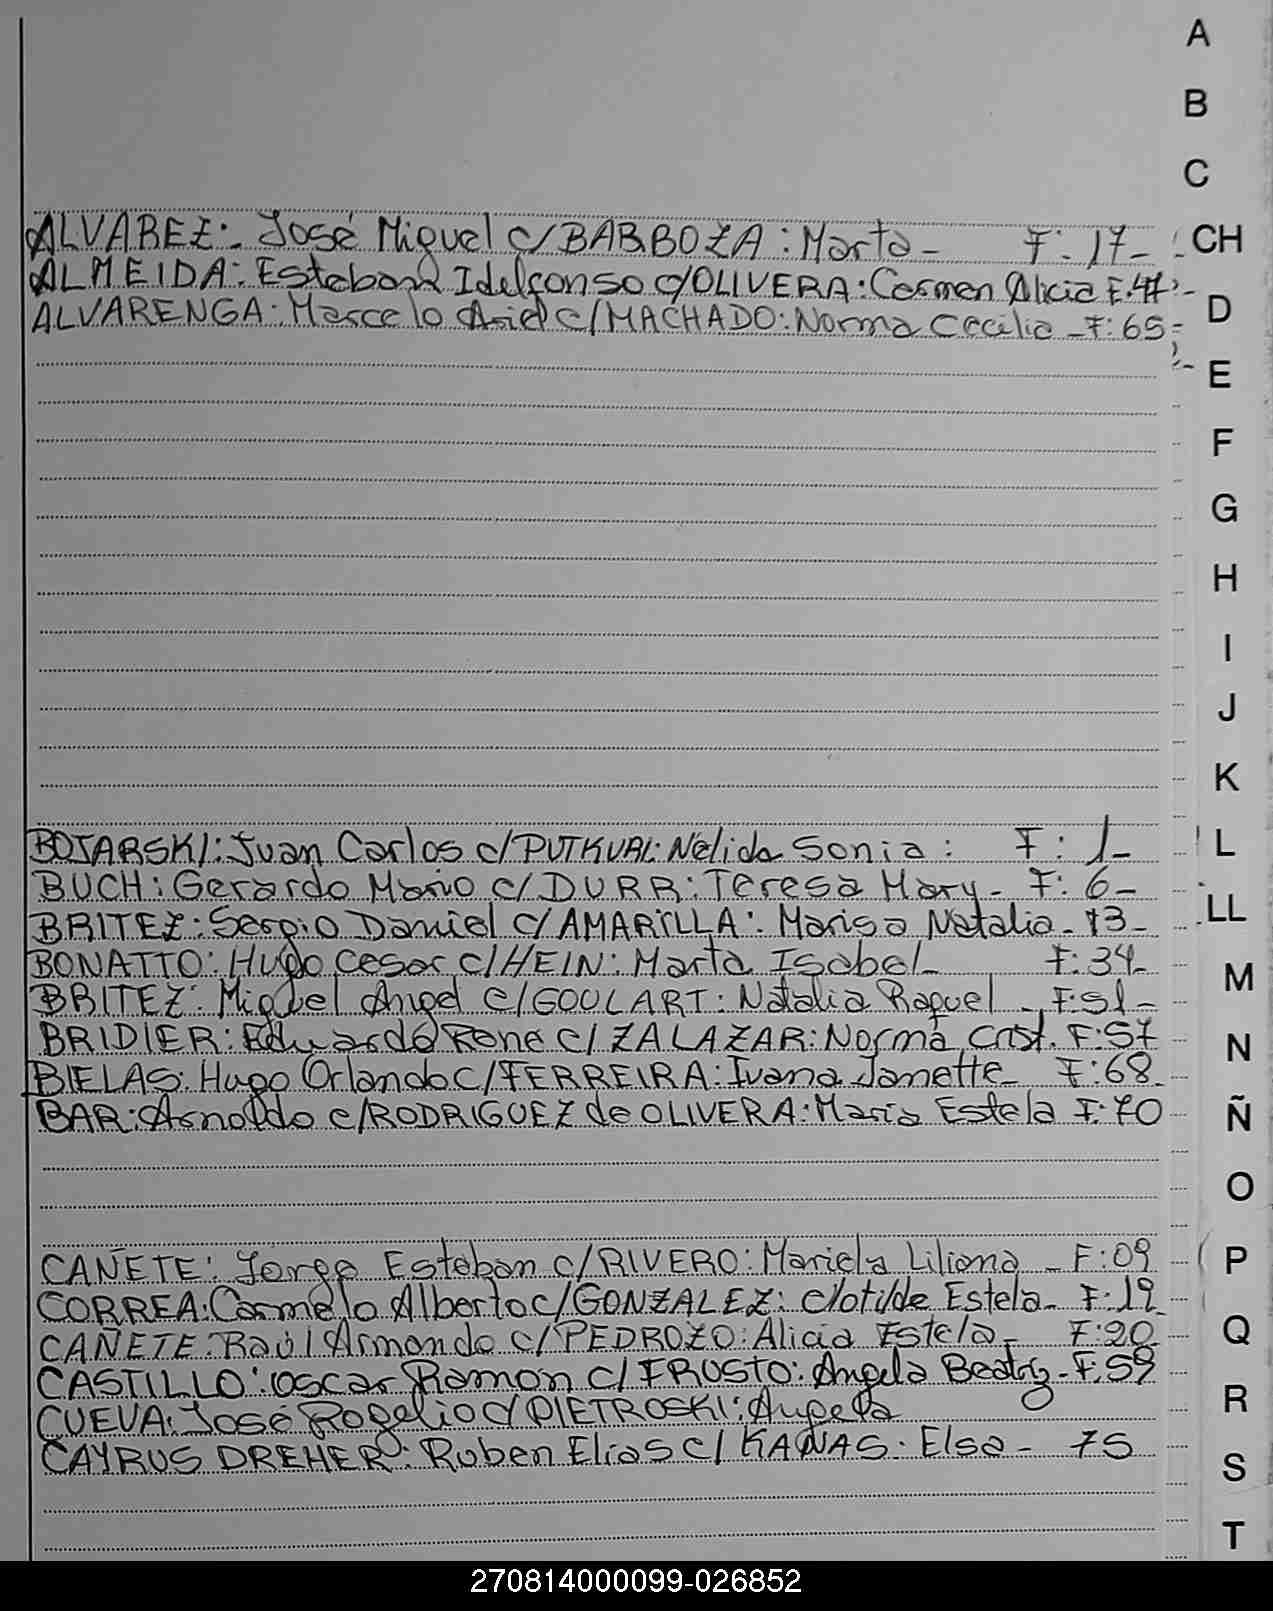 A
B
C
ALVAREZ: José Miguel c/ BARBOZA: Marta - F: 17- CH
ALMEIDA: Esteban Idelfonso c/ OLIVERA: Carmen Alicia F.47 D
ALVARENGA: Marcelo Ariel c/ MACHADO: Norma Cecilia - F: 65-
E
F
G
H
I
J
K
BOJARSKI: Juan Carlos c/ PUTKURI: Nélida Sonia: F: 1- L
BUCH: Gerardo Mario c/ DURR: Teresa Mary - F: 6-
BRITEZ: Sergio Daniel c/ AMARILLA: Marisa Natalia - 13- LL
BONATTO: Hugo Cesar c/ HEIN: Marta Isabel - F: 34-
BRITEZ: Miguel Angel c/ GOULART: Natalia Raquel - F: 51- M
BRIDIER: Eduardo Rene c/ ZALAZAR: Norma Crist. F: 57 N
BIELAS: Hugo Orlando c/ FERREIRA: Ivana Janette - F: 68-
BAR: Arnoldo c/ RODRIGUEZ de OLIVERA: Maria Estela F: 70 Ñ
O
CAÑETE: Jorge Esteban c/ RIVERO: Mariela Liliana - F: 09 P
CORREA: Carmelo Alberto c/ GONZALEZ: Clotilde Estela - F: 19
CAÑETE: Raúl Armando c/ PEDROZO: Alicia Estela - F: 20 Q
CASTILLO: Oscar Ramon c/ FRUSTO: Angela Beatriz - F. 59
CUEVA: José Rogelio c/ PIETROSKI: Angela R
CAYRUS DREHER: Ruben Elias c/ KANAS: Elsa - 75
S
T
270814000099-026852